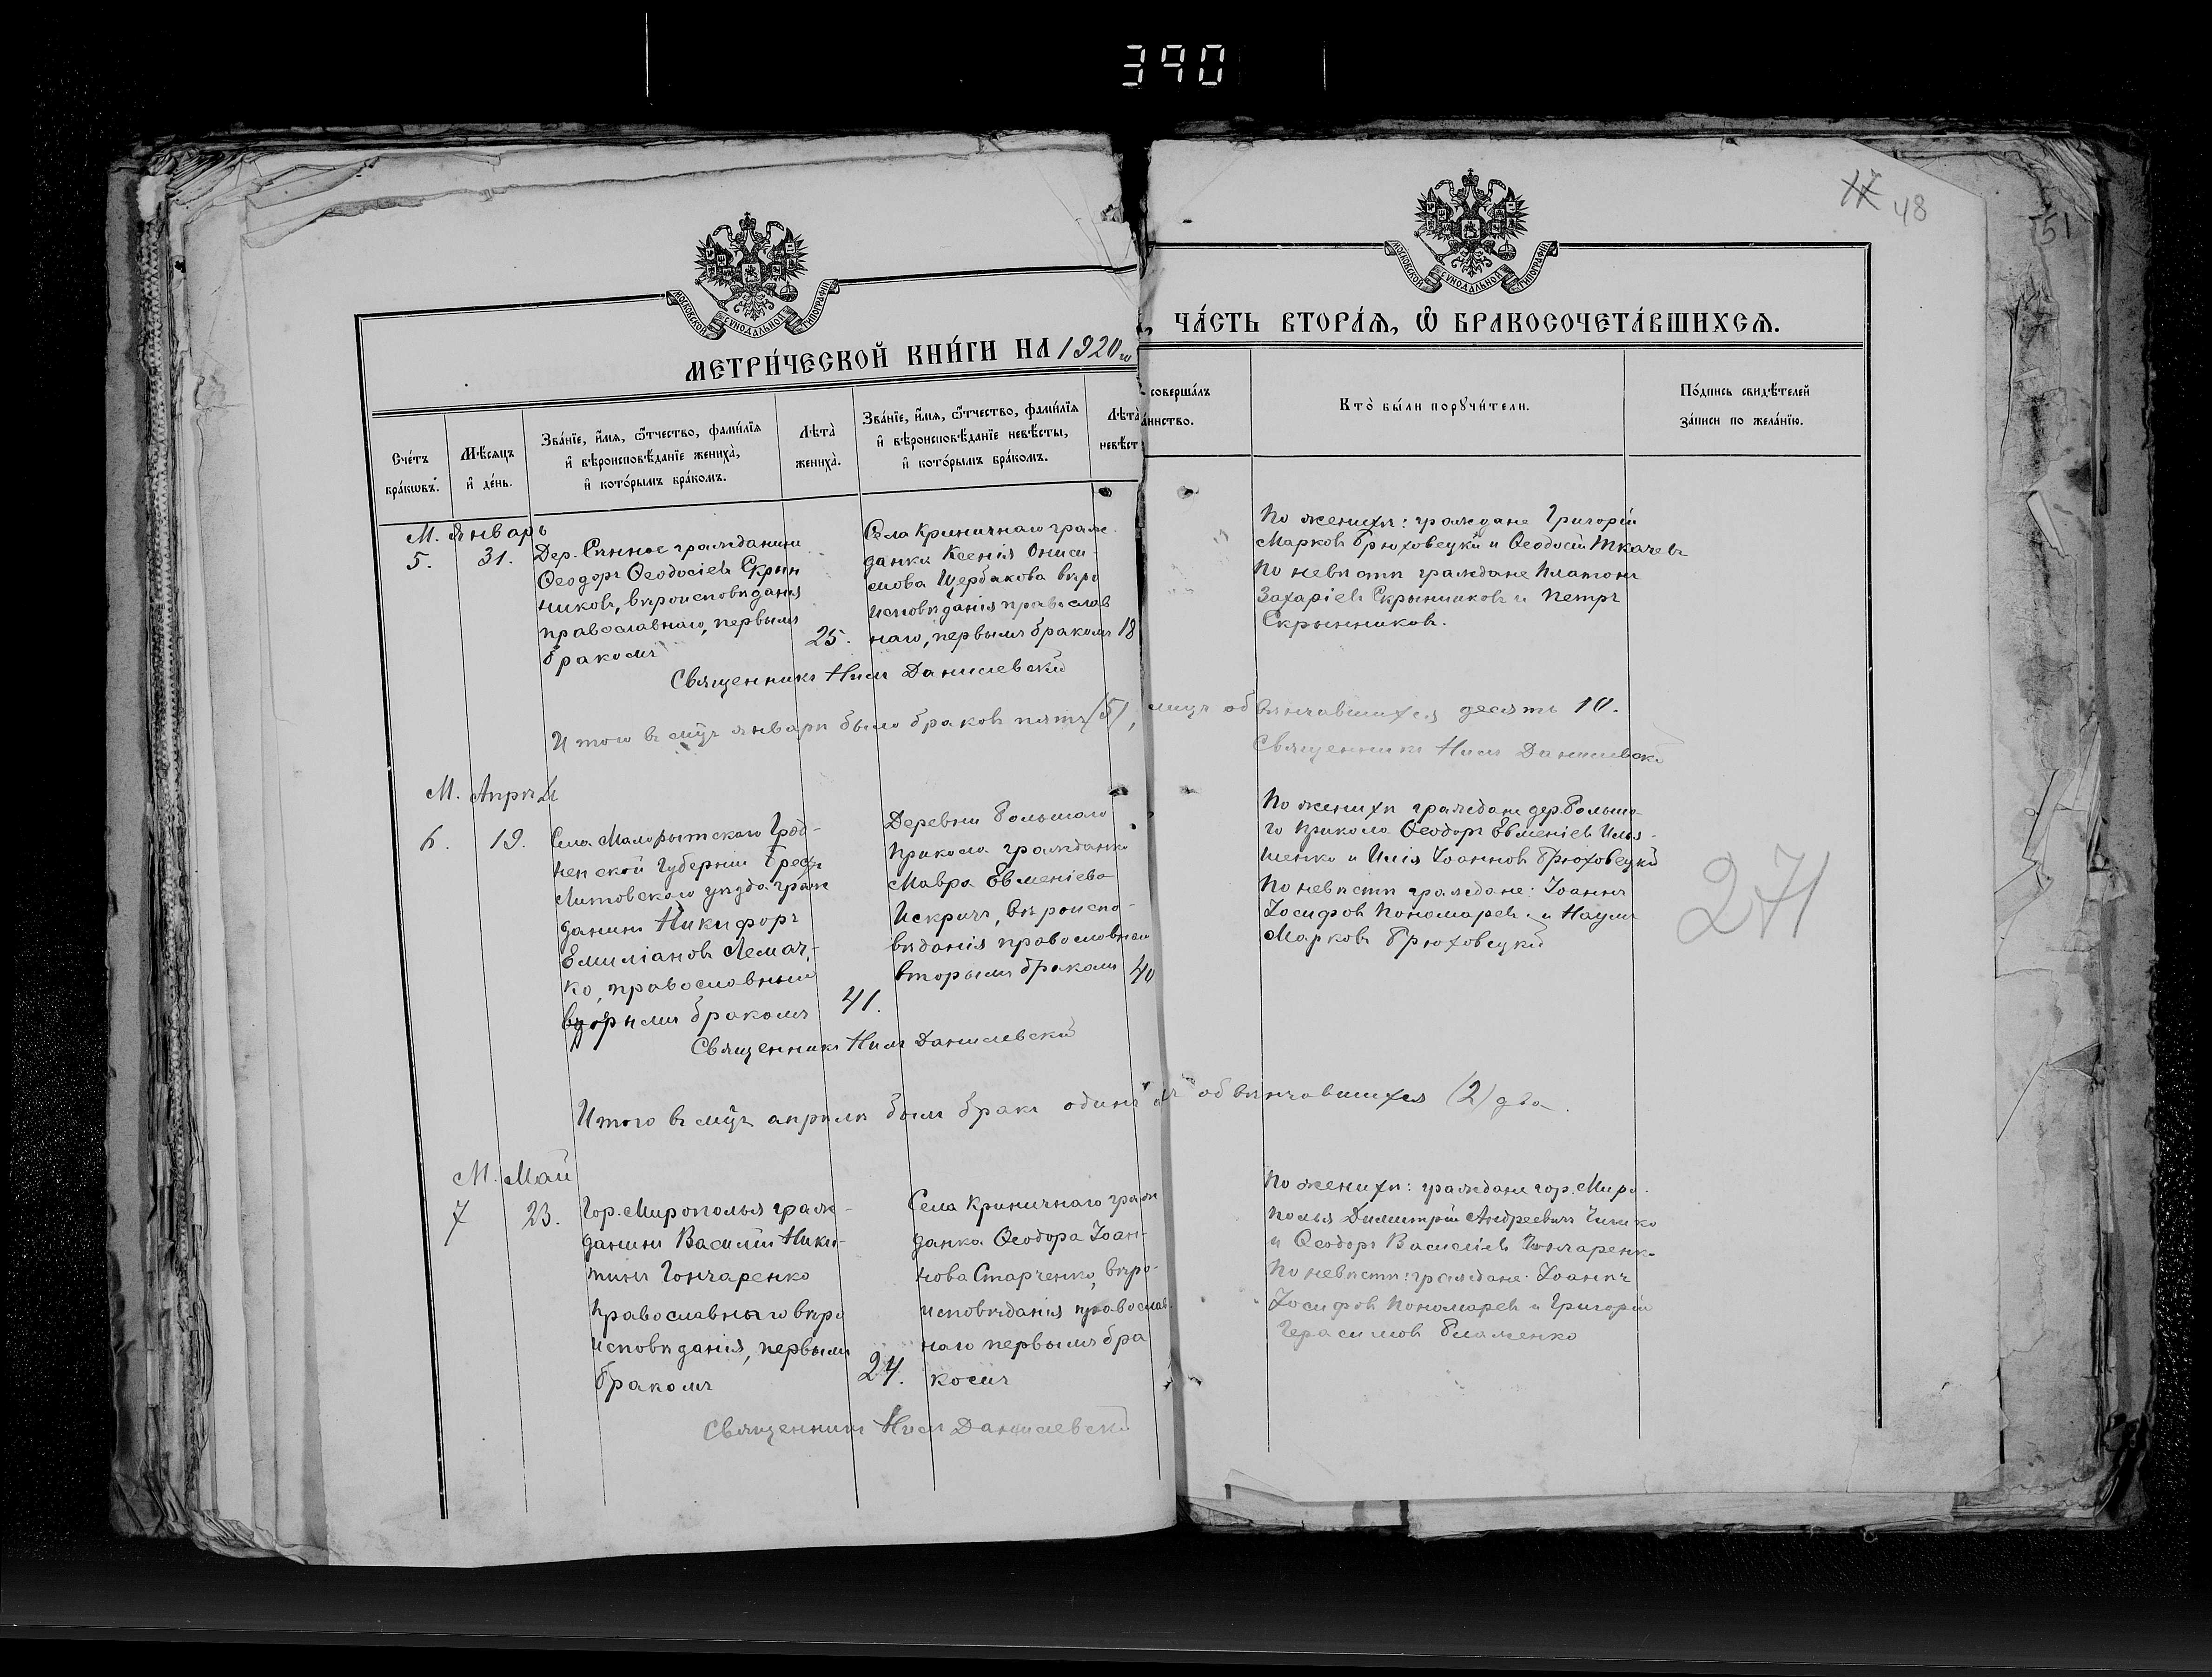 390
17 48
51
МОСКОВСКОЙ СѴНОДАЛЬНОЙ ТИПОГРАФІИ
МОСКОВСКОЙ СѴНОДАЛЬНОЙ ТИПОГРАФІИ
МЕТРИ́ЧЕСКОЙ КНИ́ГИ НА 1920 го
ЧА́СТЬ ВТОРА́Ѧ, Ѽ БРАКОСОЧЕТА́ВШИХСѦ.
Сче́тъ бра́кѡвъ.
Мѣ́сѧцъ и҆ де́нь.
Зва́нїе, и҆́мѧ, ѻ҆́тчество, фамилїѧ
и҆ вѣроисповѣ́данїе жениха̀,
и҆ кото́рымъ бра́комъ.
Лѣта̀ жениха̀.
Зва́нїе, и҆́мѧ, ѻ҆́тчество, фамилїѧ
и҆ вѣроисповѣ́данїе невѣ́сты,
и҆ кото́рымъ бра́комъ.
Лѣта̀
невѣст
соверша́лъ
а́инство.
Кто̀ бы́ли порꙋчи́тели.
По́дпись свидѣ́телей
за́писи по жела́нїю.
М. Январь
5. 31.
Дер. Синное гражданинъ
Ѳеодоръ Ѳеодосіевъ Скрын
никовъ, вѣроисповѣданія
православнаго, первымъ
бракомъ
25.
Села Криничнаго граж
данка Ксенія Ониси-
мова Щербакова вѣро
исповѣданія православ
наго, первымъ бракомъ 18
По женихѣ: граждане Григорій
Марковъ Брюховецкій и Ѳеодосій Ткачевъ
По невѣстѣ граждане Платонъ
Захаріевъ Скрынниковъ и Петръ
Скрынниковъ.
Священникъ Нилъ Данилевскій
Итого въ м͠цѣ январѣ было браковъ пять (5), лицъ обвѣнчавшихся десять 10.
Священникъ Нилъ Данилевскій
М. Апрѣль
6. 19.
Села Малорытскаго Грод-
ненской Губерніи Брест
Литовскаго уѣзда граж
данинъ Никифоръ
Емиліановъ Лемач-
ко, православный
вторымъ бракомъ 41.
Деревни Большаго
Прикола гражданка
Мавра Евменіева
Искричъ, вѣроиспо-
вѣданія православнаго
вторымъ бракомъ 40
По женихѣ граждане дер. Больша-
го Прикола Ѳеодоръ Евменіевъ Илья-
шенко и Илія Іоанновъ Брюховецкій
По невѣстѣ граждане: Іоаннъ
Іосифовъ Пономаревъ и Наумъ
Марковъ Брюховецкій
271
Священникъ Нилъ Данилевскій
Итого въ м͠цѣ апрѣлѣ былъ бракъ одинъ обвѣнчавшихся (2) два.
М. Май
7 23.
Гор. Мирополья граж-
данинъ Василій Ники-
тинъ Гончаренко
православнаго вѣро
исповѣданія, первымъ
бракомъ
24.
Села Криничнаго граж
данка Ѳеодора Іоан-
нова Старченко, вѣро-
исповѣданія православ-
наго первымъ бра
комъ
По женихѣ: граждане гор. Миро-
полья Димитрій Андреевичъ
и Ѳеодоръ Василіевъ Гончаренко
По невѣстѣ: граждане: Іоаннъ
Іосифовъ Пономаревъ и Григорій
Герасимовъ
Священникъ Нилъ Данилевскій